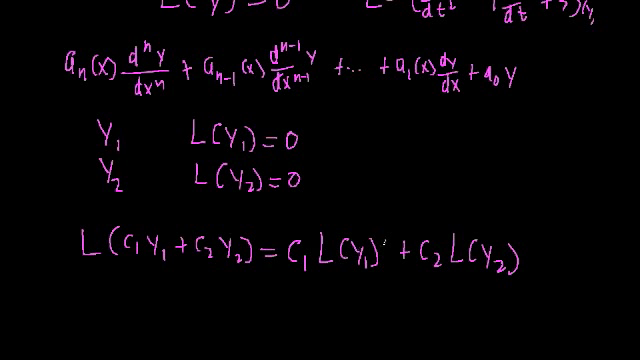 L(y) = 0 L = (
dt dt
a_n(x) d^n y/dx^n + a_{n-1}(x) d^{n-1} y/dx^{n-1} + ... + a_1(x) dy/dx + a_0 y
Y_1 L(Y_1) = 0
Y_2 L(Y_2) = 0
L(c_1 Y_1 + c_2 Y_2) = c_1 L(Y_1) + c_2 L(Y_2)